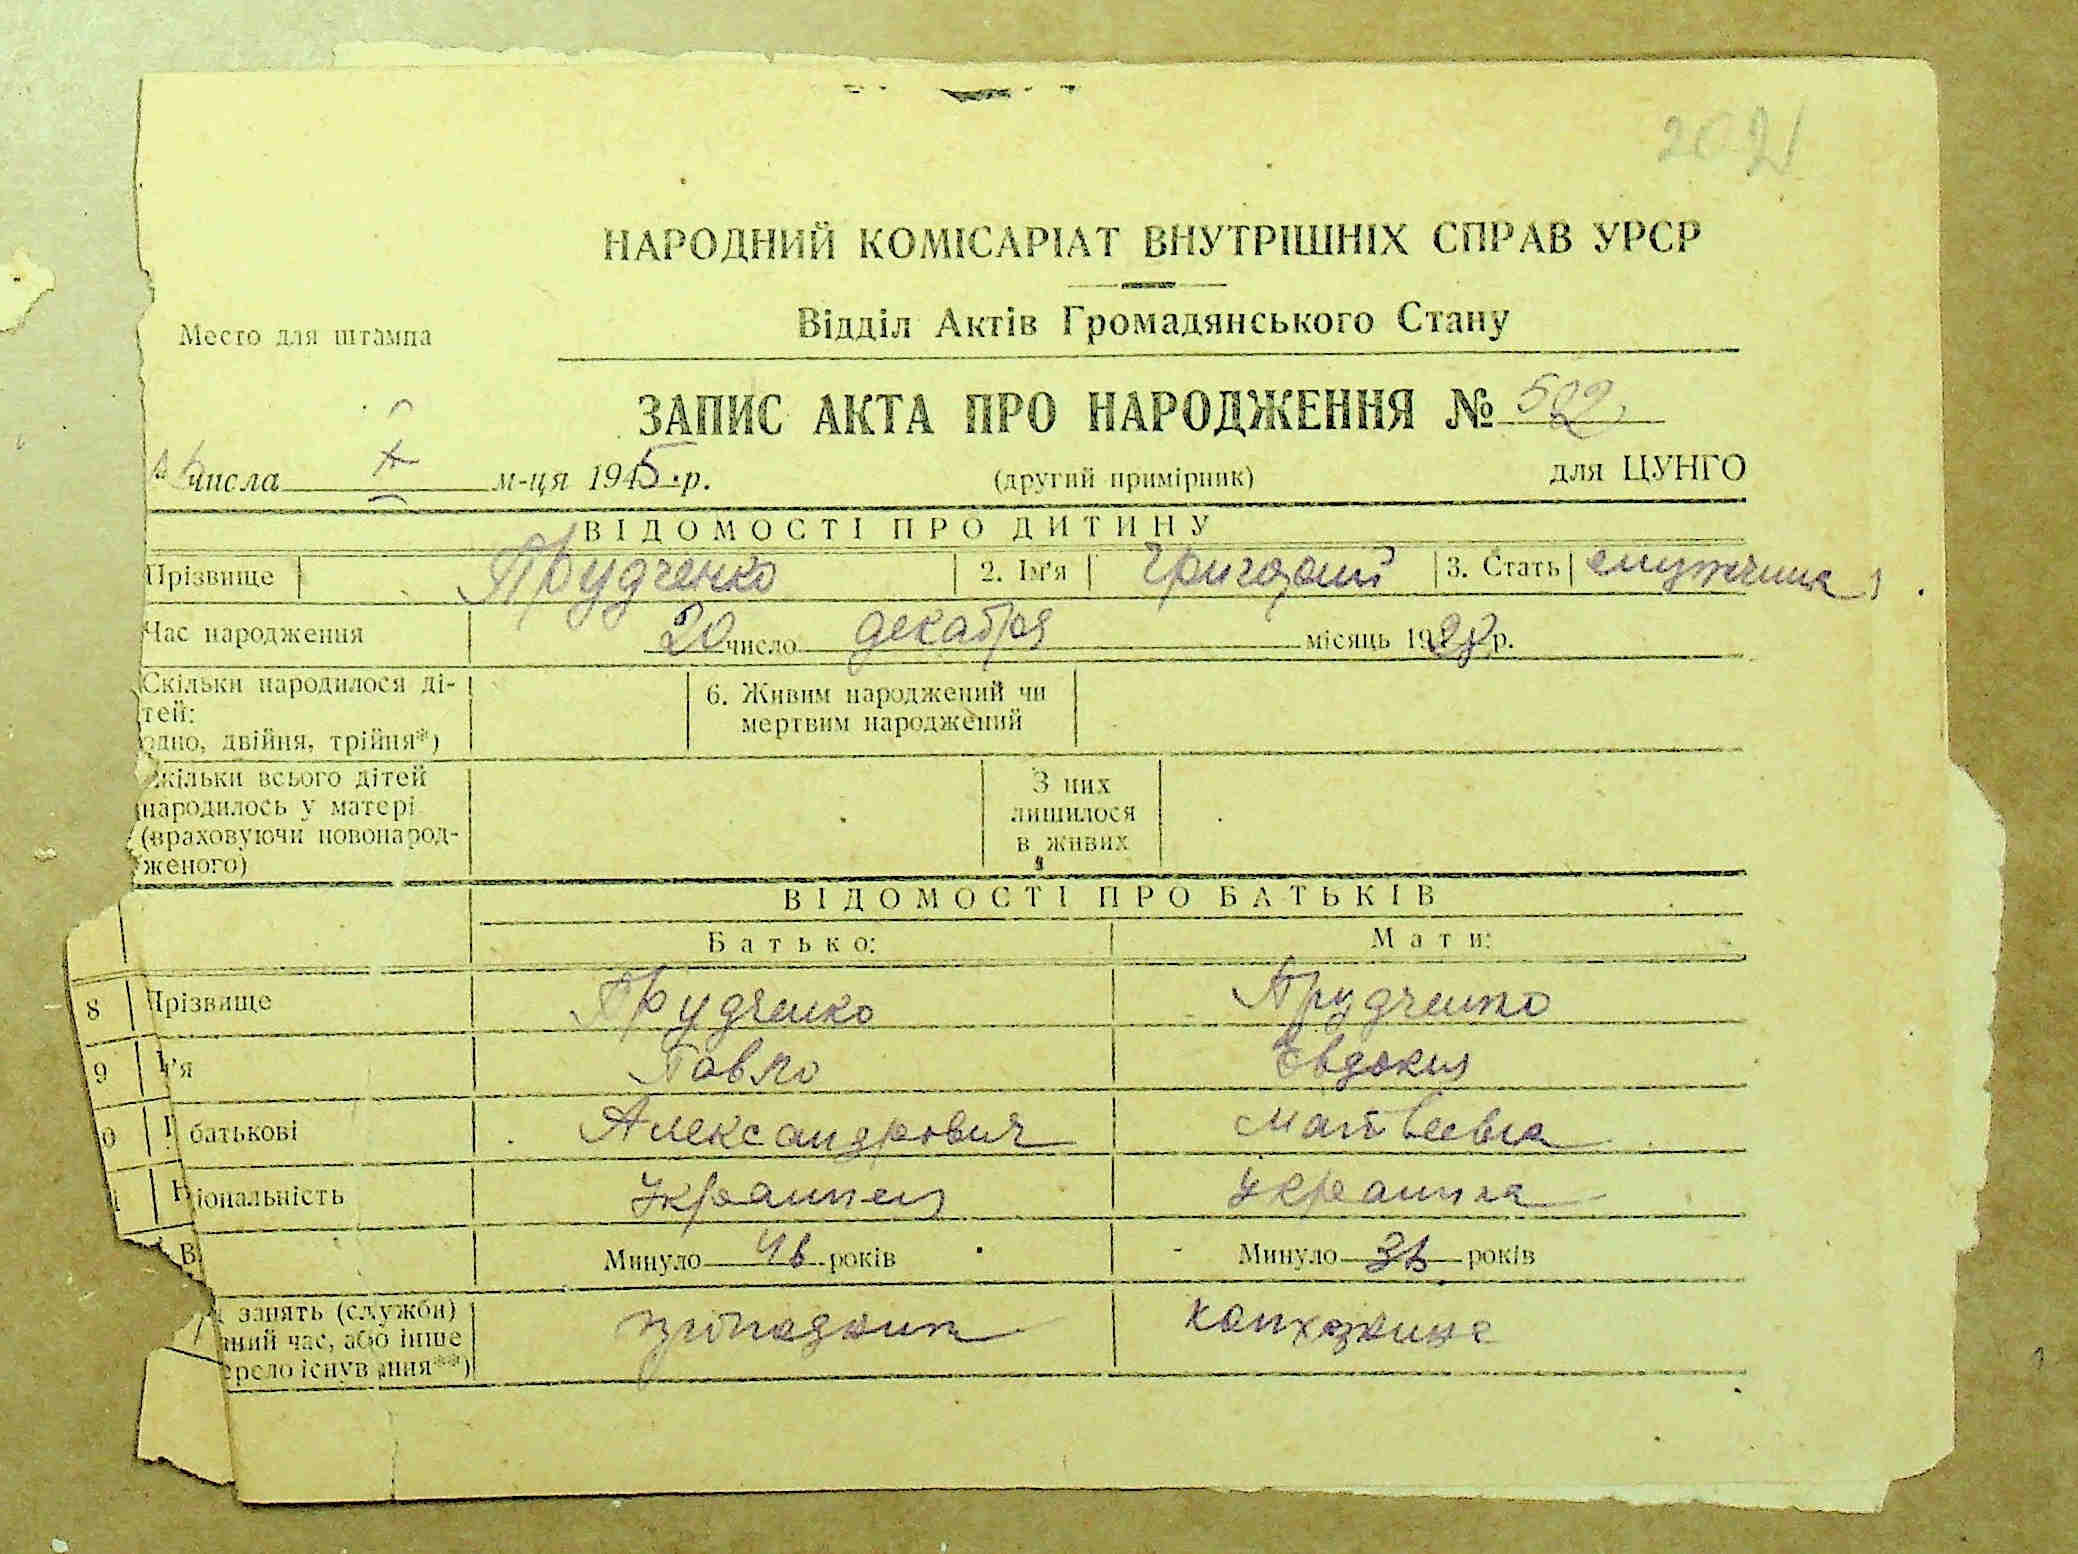 НАРОДНИЙ КОМІСАРІАТ ВНУТРІШНІХ СПРАВ УРСР
Место для штампа
Відділ Актів Громадянського Стану
ЗАПИС АКТА ПРО НАРОДЖЕННЯ №
числа X м-ця 1945 р. (другий примірник) для ЦУНГО
ВІДОМОСТІ ПРО ДИТИНУ
Прізвище Прудченко 2. Ім'я Григорий 3. Стать мужчина
Час народження 20 число декабря місяць 19 р.
Скільки народилося ді-
тей:
одно, двійня, трійня*)
6. Живим народжений чи
мертвим народжений
скільки всього дітей
народилось у матері
(враховуючи новонарод-
женого)
З них
лишилося
в живих
ВІДОМОСТІ ПРО БАТЬКІВ
Батько: Мати:
8 Прізвище Прудченко Прудченко
9 І 'я Павло Евдокия
0 П батькові Александрович Матвеевна
Н іональність Украинец Украинка
В Минуло років Минуло років
занять (служби)
ний час, або інше
ерело існування**)
колхозница